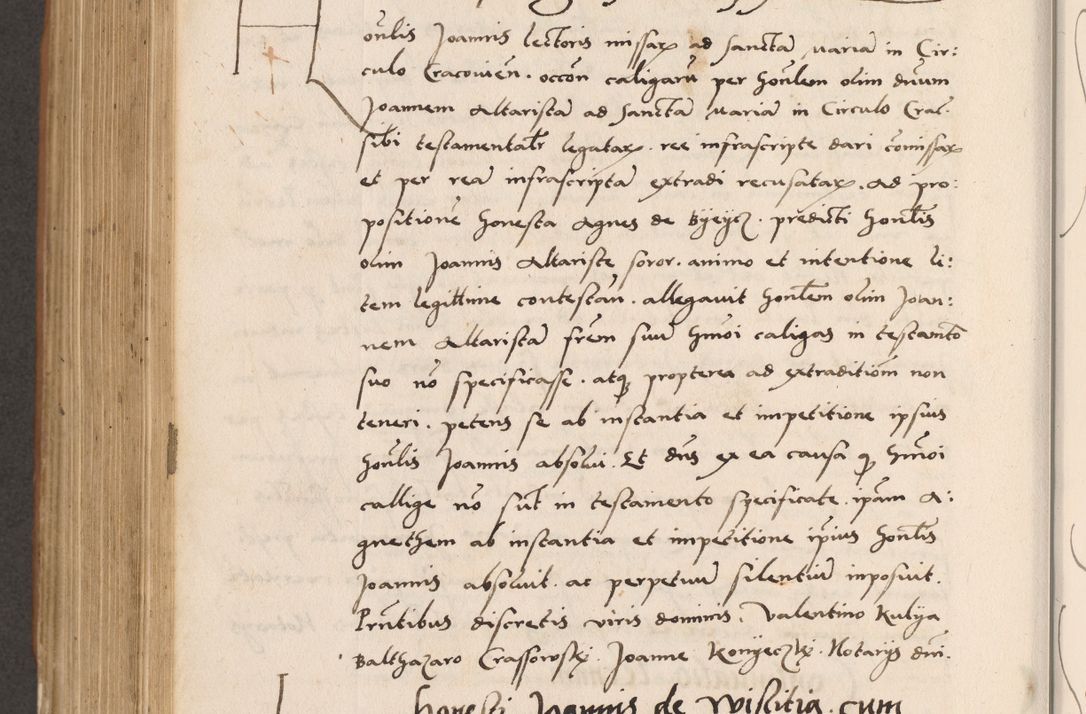 onlis Joannis lectoris missarum ad Sanctā Mariā in Cir:
culo Cracovien. occōn caligarū per honlem olim dnum
Joannem Altaristā ad Sanctā Mariā in Circulo Crac.
sibi testamentalr legatarum. ree infrascripte dari comissarum
et per reā infrascriptā extradi recusatarum. Ad pro:
positionē honesta Agnes de Byeycz. predicti honlis
olim Joannis Altariste soror. animo et intentione li:
tem legittime contestan. allegavit honlem olim Joan:
nem Altaristā frem suū hmoi caligas in testamto
suo nō specificasse. atq̄ propterea ad extraditiōm non
teneri. petens se ab instantia et impetitione ipsius
honlis Joannis absolvi. Et dns ex ea causa q̄ hmoi
callige nō sut in testamento specificate. ipam A:
gnethem ab instantia et impetitione ipius honlis
Joannis absolvit. ac perpetuū silentiū inposuit.
Prntibus discretis viris dominis. Valentino Kulya
Balthazaro Crassowskj. Joanne Konyeczkj. Notarijs dni.
honesti Joannis de Wislitia. cum